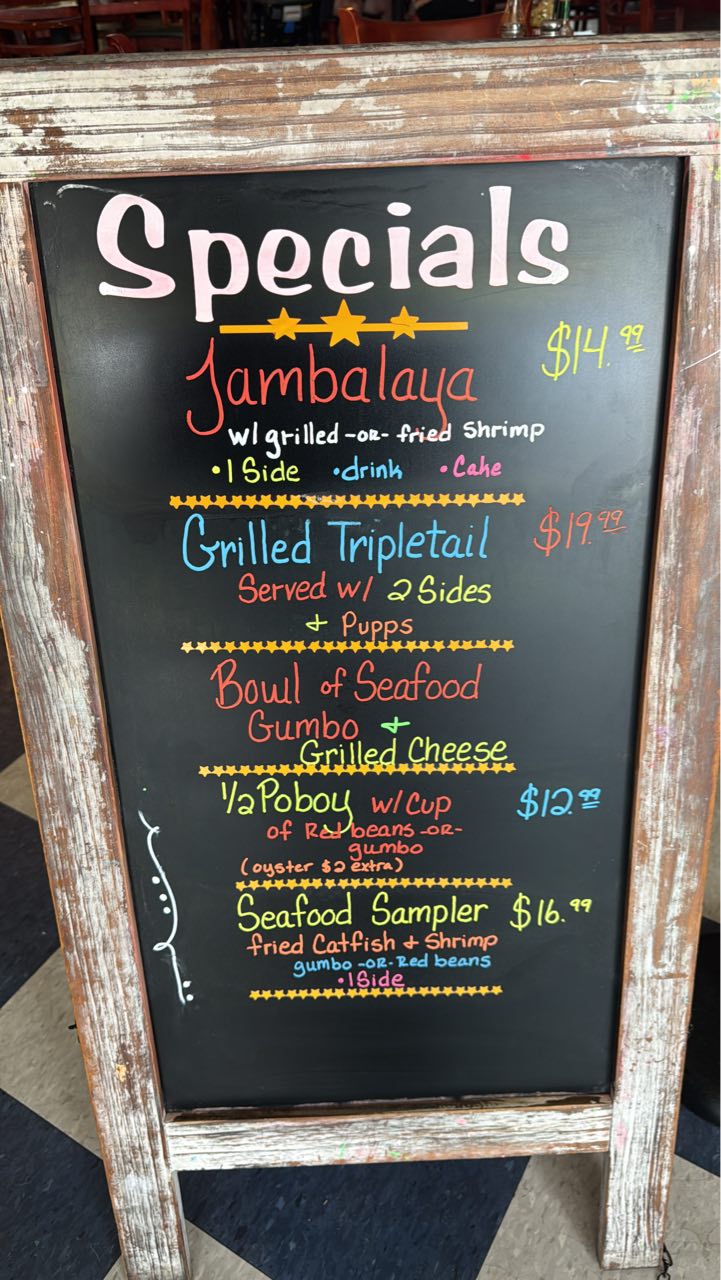 Specials
Jambalaya $14.99
w/ grilled -OR- fried Shrimp
•1 Side •drink •Cake
Grilled Tripletail $19.99
Served w/ 2 Sides
+ Pupps
Bowl of Seafood
Gumbo +
Grilled Cheese
1/2 Poboy w/ Cup $12.99
of Red beans -OR-
gumbo
(oyster $2 extra)
Seafood Sampler $16.99
fried Catfish + Shrimp
gumbo -OR- Red beans
•1 Side